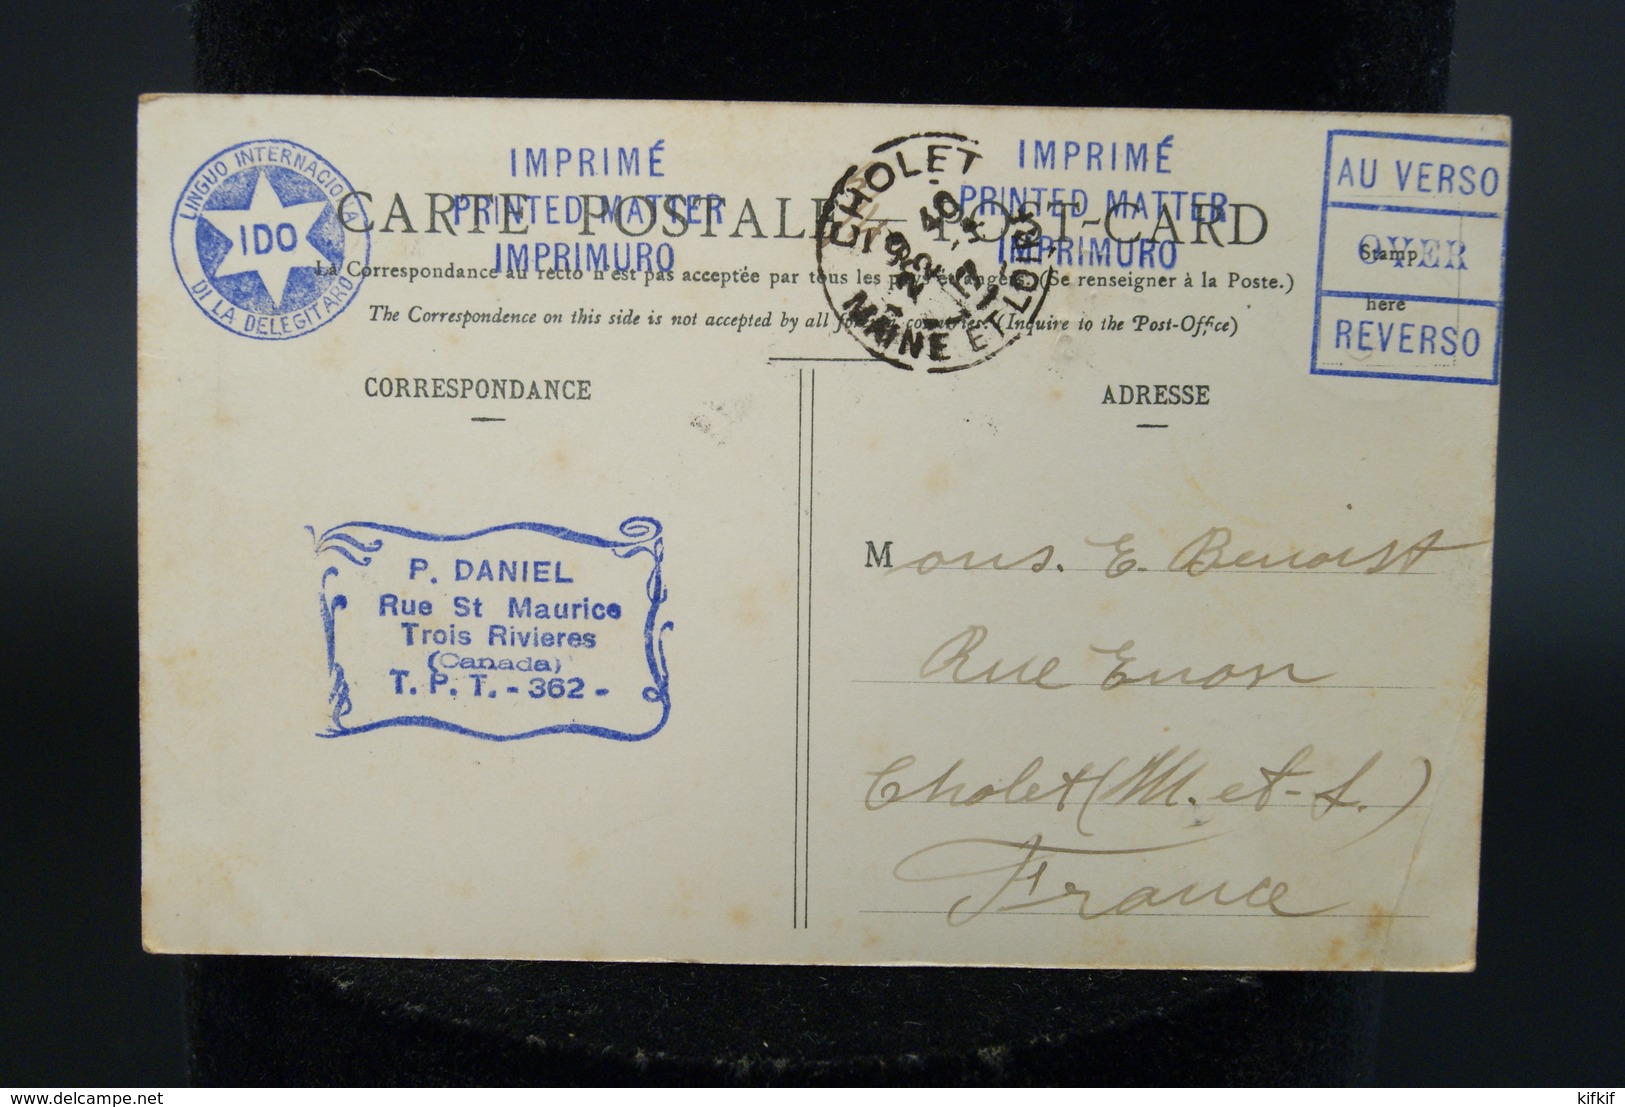 LINGUO INTERNACIONA
DI LA DELEGITARO
IDO
IMPRIMÉ
PRINTED MATTER
IMPRIMURO
IMPRIMÉ
PRINTED MATTER
IMPRIMURO
CARTE POSTALE — POST-CARD
CHOLET
MAINE ET LOIRE
AU VERSO
OVER
REVERSO
Stamp
here
La Correspondance au recto n'est pas acceptée par tous les pays étrangers. (Se renseigner à la Poste.)
The Correspondence on this side is not accepted by all foreign countries. (Inquire to the Post-Office)
CORRESPONDANCE
ADRESSE
P. DANIEL
Rue St Maurice
Trois Rivieres
(Canada)
T. P. T. - 362 -
Mons. E. Benoist
Rue Enon
Cholet (M.-et-L.)
France
kifkif